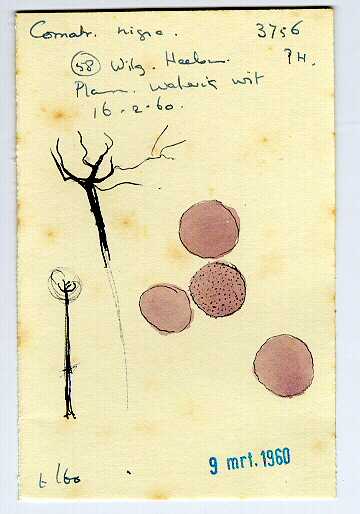 Comatr. nigra. 3756
58 Wilg. Heelsum. PH.
Plasm. waterig wit
16-2-60.
t/60
9 mrt. 1960